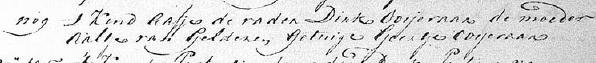 nog 1 Kind Aafje de vader Dirk Ooijevaar de moeder
Aalte van Gelderen, Getuige Geertje Ooijevaar